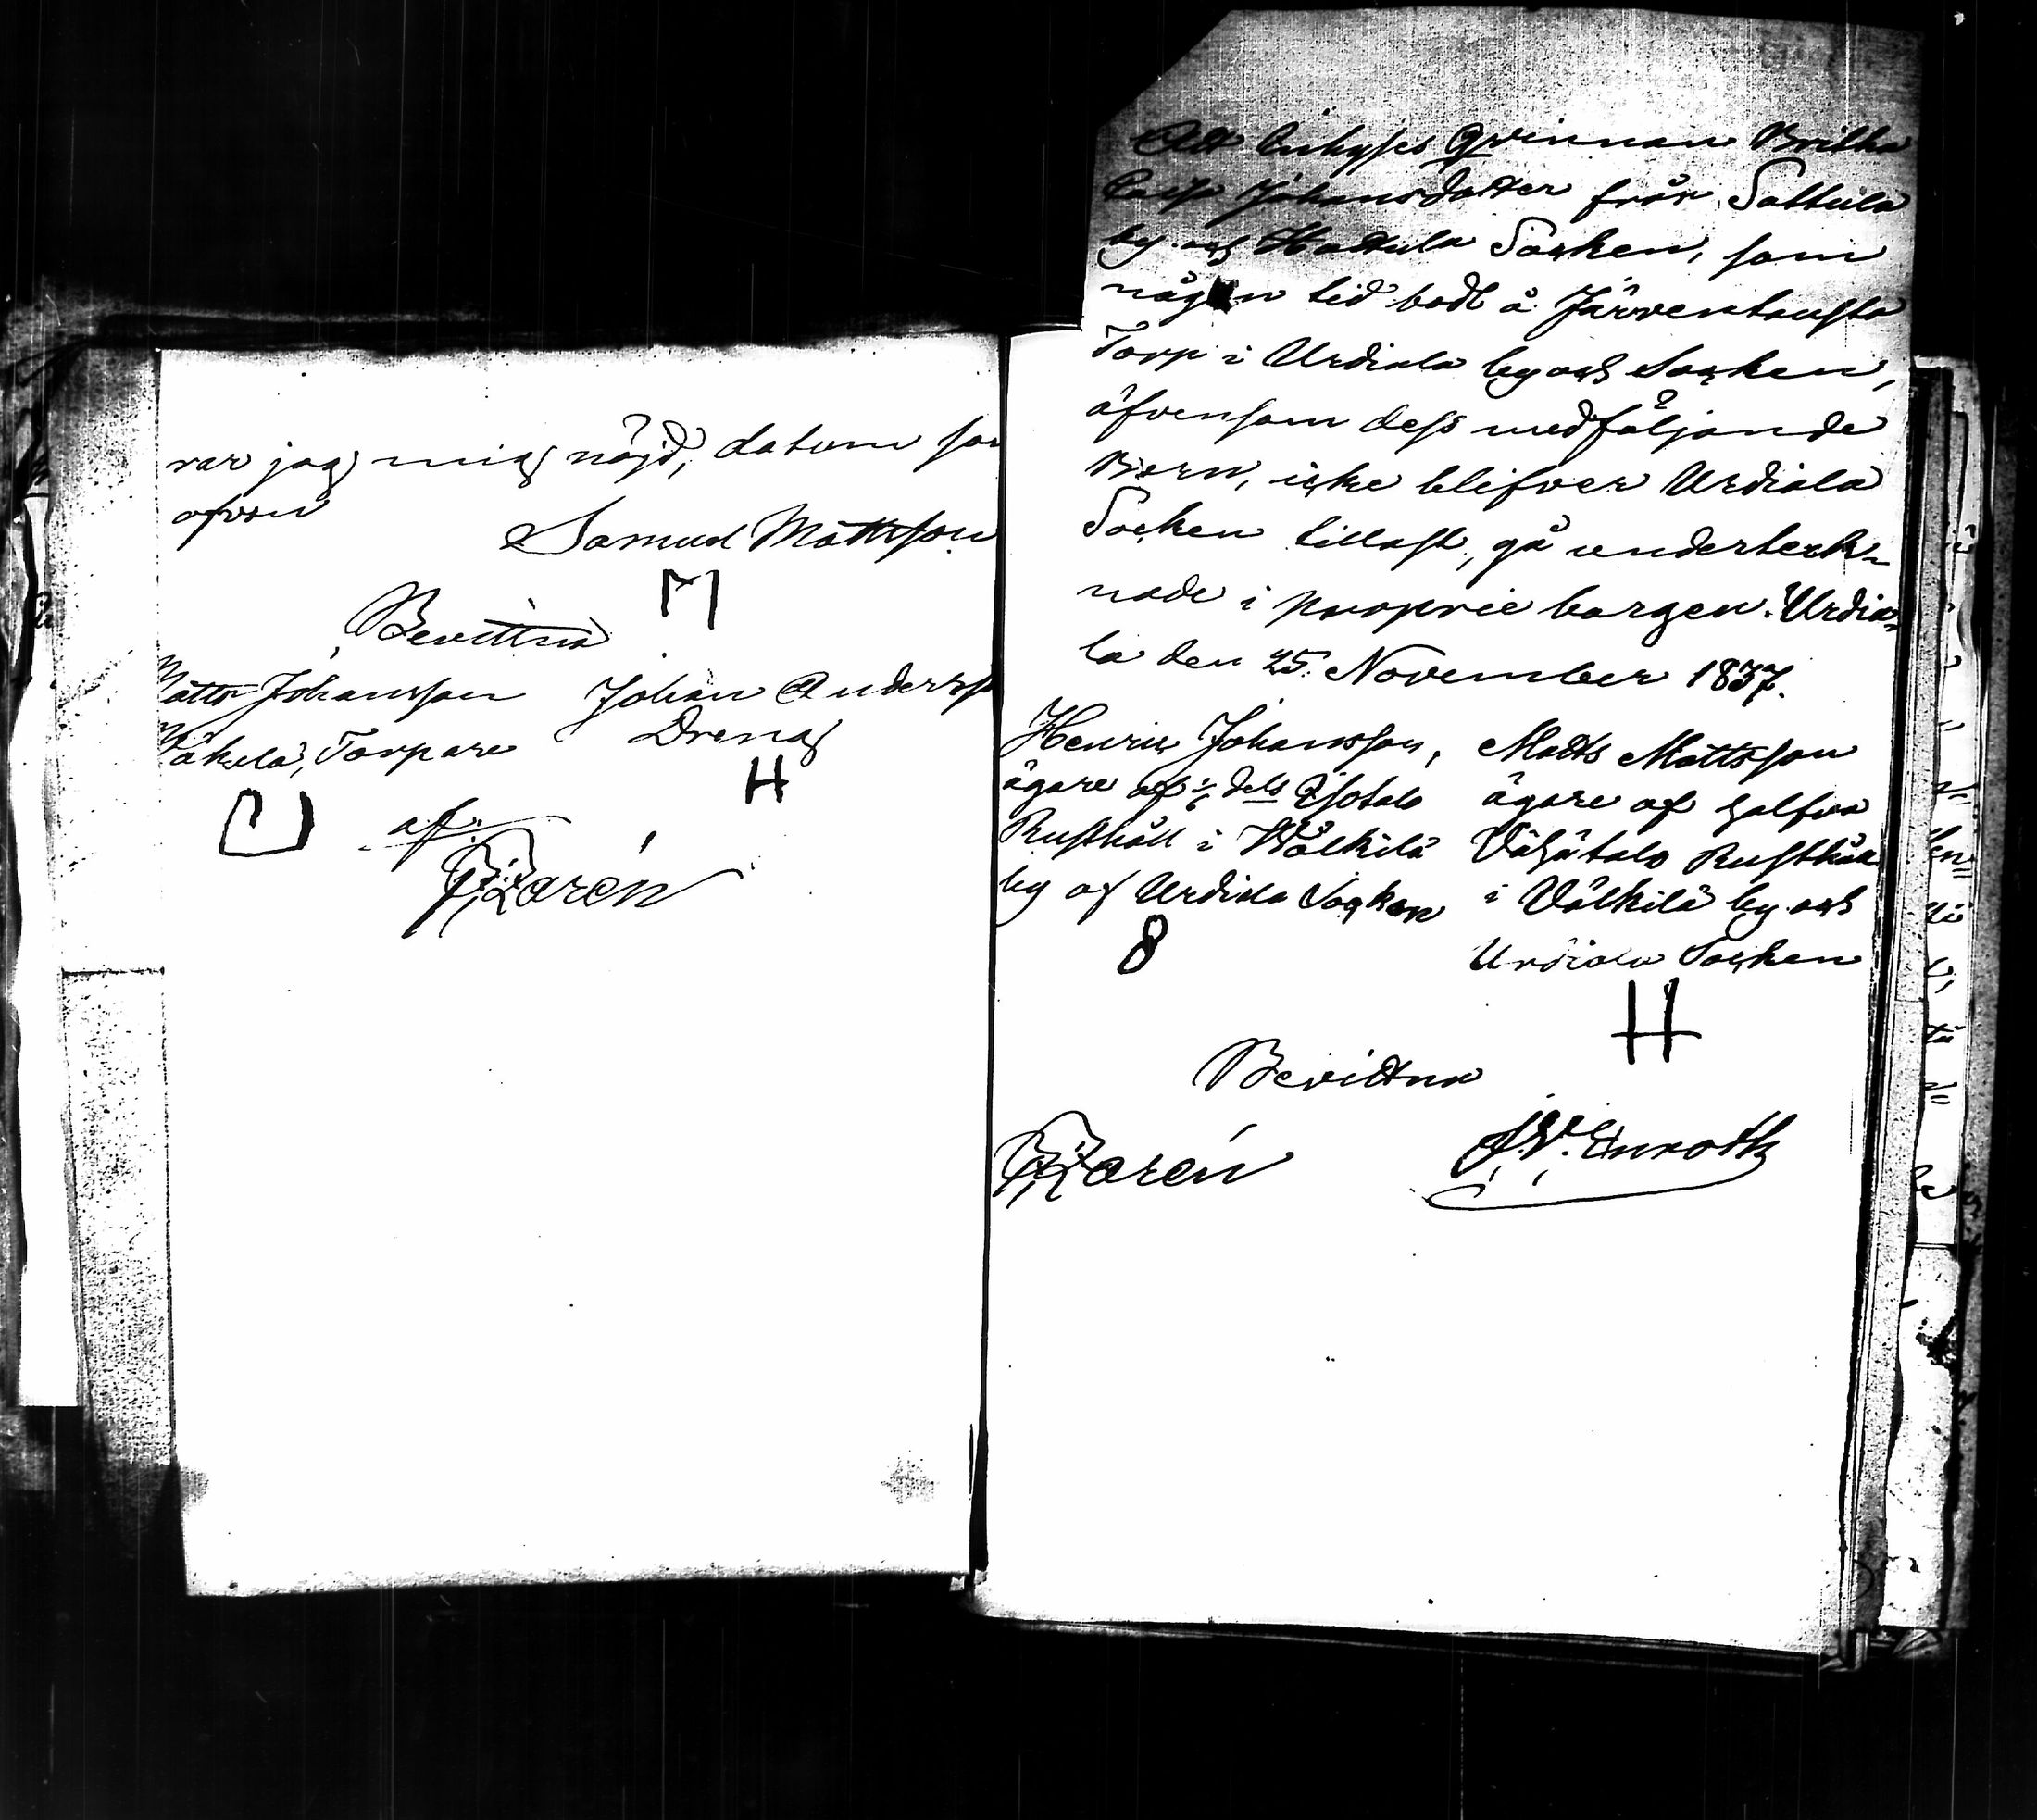 rar jag mig nöjd, datum som
ofvan
Samuel Mattsson
M
Bevittna
Matts Johansson
Mäkelä, Torpare
Johan Andersson
Dreng
H
af:
Zarén
Att Enkyses Qvinnan Britha
Caisa Johansdotter från Sattula
by och Hattula Socken, som
någon tid bodt å Järventausta
Torp i Urdiala by och Socken,
äfvensom dess medföljande
Barn, icke blifver Urdiala
Socken tillast, gå underteck-
nade i proprie borgen. Urdia-
la den 25. November 1837.
Henric Johansson,
ägare af 1/6 dels Isotalo
Rusthåll i Wälkilä
by af Urdiala Socken
8
Matts Mattsson
ägare af halfva
Vähätalo Rusthåll
i Välkilä by och
Urdiala Socken
H
Bevittna
Zarén
J. W. Enroth